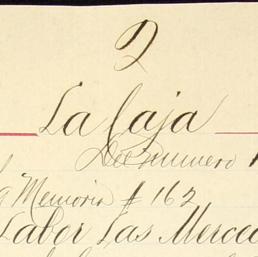 2
La Caja
Del numero 1
g Memoria # 162
Labor Las Merce